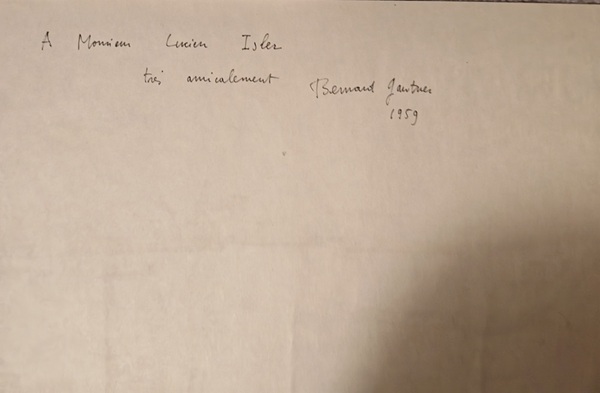 A Monsieur Lucien Isler
très amicalement Bernard Gantner
1959